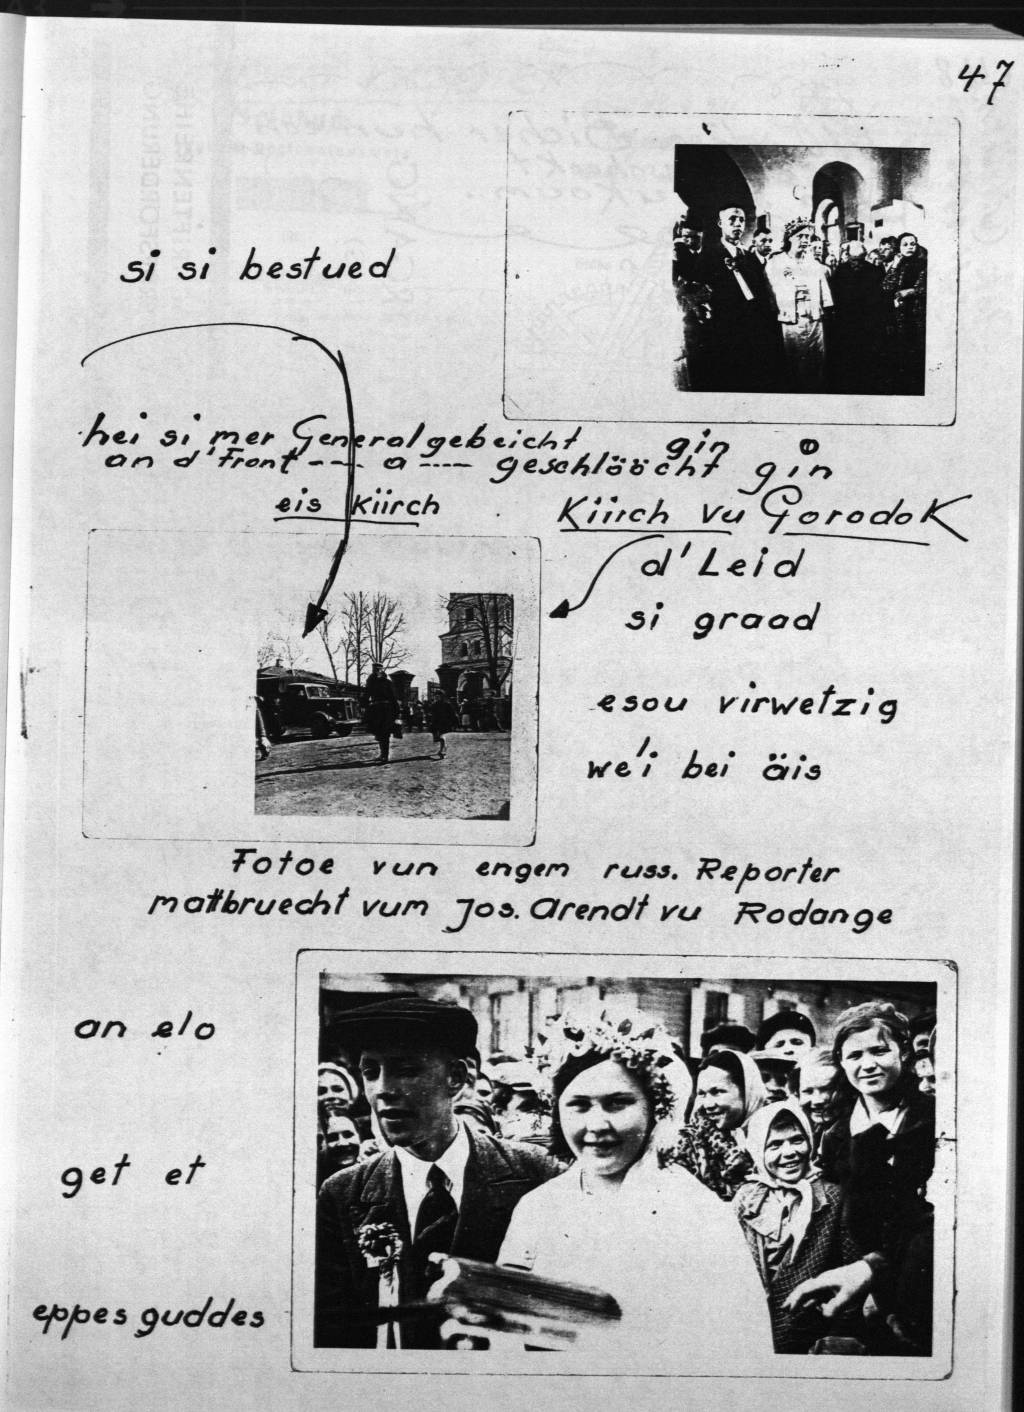 47
si si bestued
hei si mer Generalgebeicht gin
an d'Front ---- a ---- geschlööcht gin
eis Kiirch
Kiirch vu Gorodok
d'Leid
si graad
esou virwetzig
we'i bei äis
Fotoe vun engem russ. Reporter
mattbruecht vum Jos. Arendt vu Rodange
an elo
get et
eppes guddes